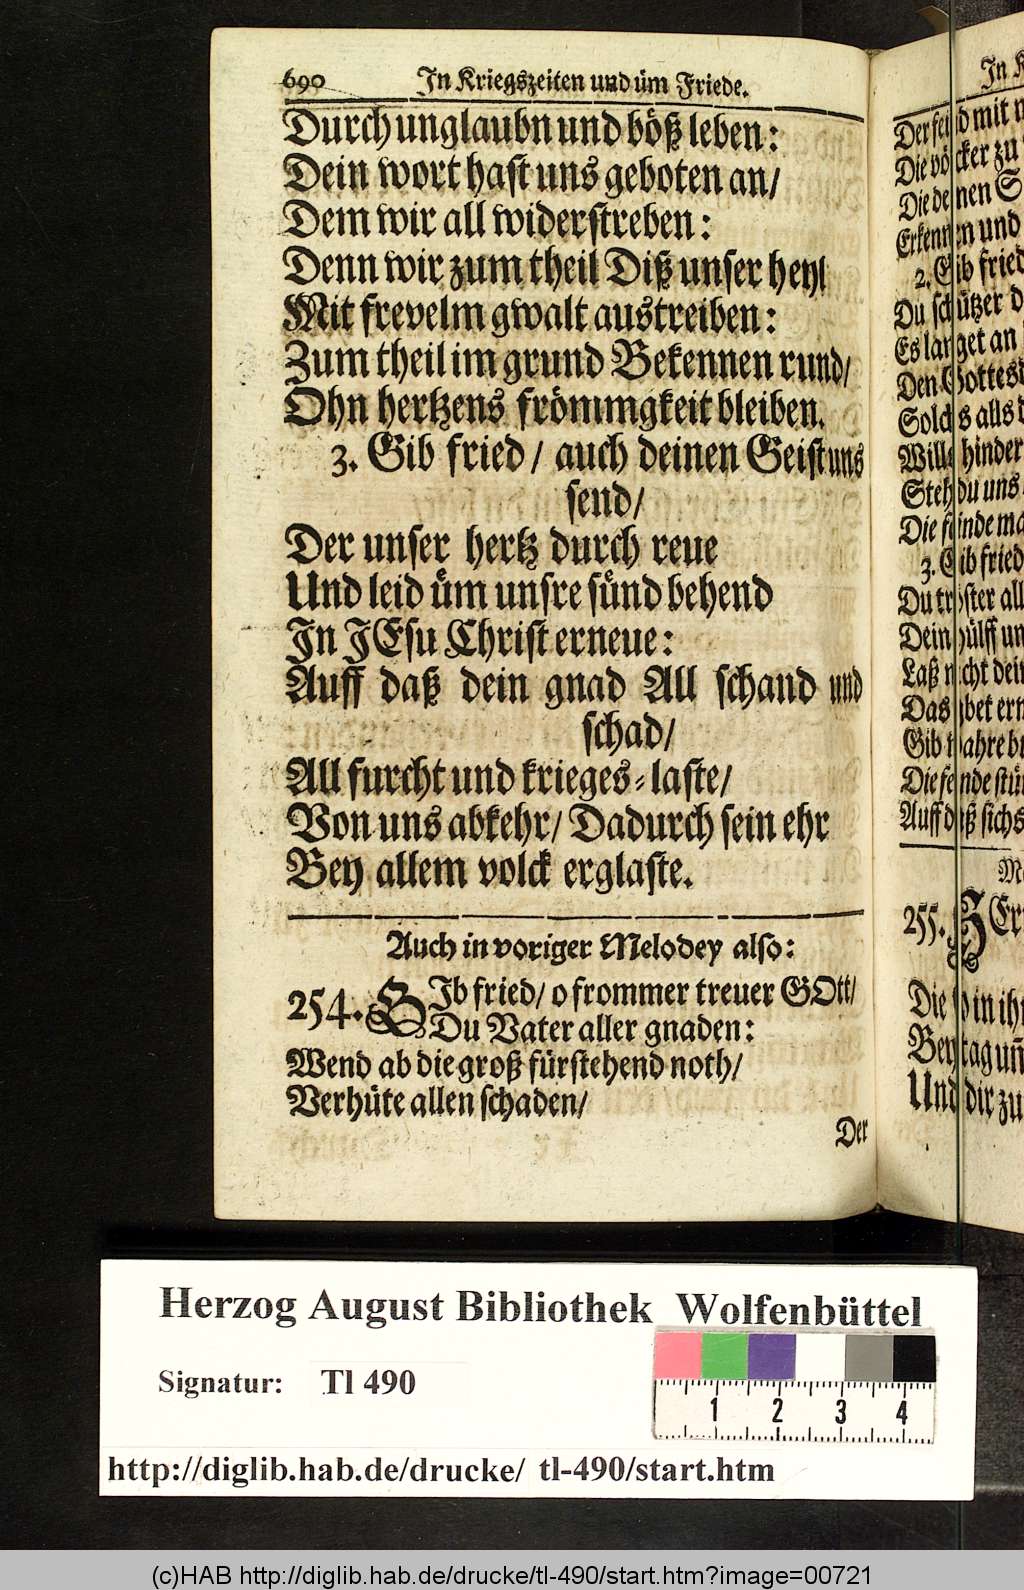 690 In Kriegszeiten und üm Friede.
Durch unglaubn und böß leben:
Dein wort hast uns geboten an/
Dem wir all widerstreben:
Denn wir zum theil Diß unser heyl
Mit frevelm gwalt austreiben:
Zum theil im grund Bekennen rund/
Ohn hertzens frömmgkeit bleiben.
3. Gib fried/ auch deinen Geist uns
send/
Der unser hertz durch reue
Und leid üm unsre sünd behend
In JEsu Christ erneue:
Auff daß dein gnad All schand und
schad/
All furcht und krieges-laste/
Von uns abkehr/ Dadurch sein ehr
Bey allem volck erglaste.
Auch in voriger Melodey also:
254. GJb fried/ o frommer treuer GOtt/
Du Vater aller gnaden:
Wend ab die groß fürstehend noth/
Verhüte allen schaden/
Der
In
Der mit
Die zu
Die
und
2. Gib fried
Du
Es langet an
Den
alls
hinder
Steh du uns
Die
3. Gib fried
Du tröster all
Dein hülff
Laß nicht dein
Das
Gib
Die
Auff daß sichs
255.
Die in
Bey tag uñ
Und dir zu
Herzog August Bibliothek Wolfenbüttel
Signatur: Tl 490
1 2 3 4
http://diglib.hab.de/drucke/ tl-490/start.htm
(c)HAB http://diglib.hab.de/drucke/tl-490/start.htm?image=00721